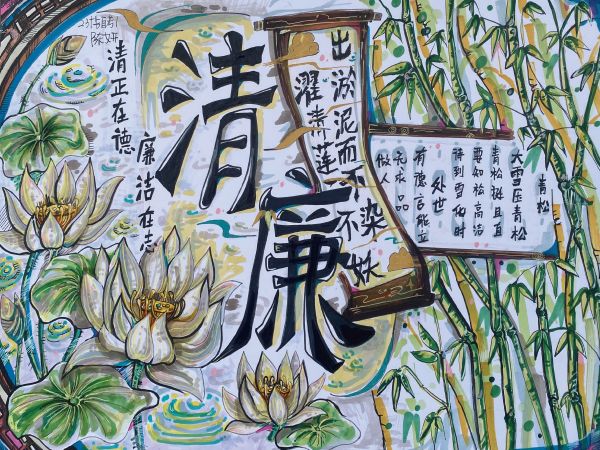 清正在德
廉洁在志
清廉
出淤泥而不染
濯青莲不妖
青松
大雪压青松
青松挺且直
要知松高洁
待到雪化时
处世
有德言能立
无求品
做人